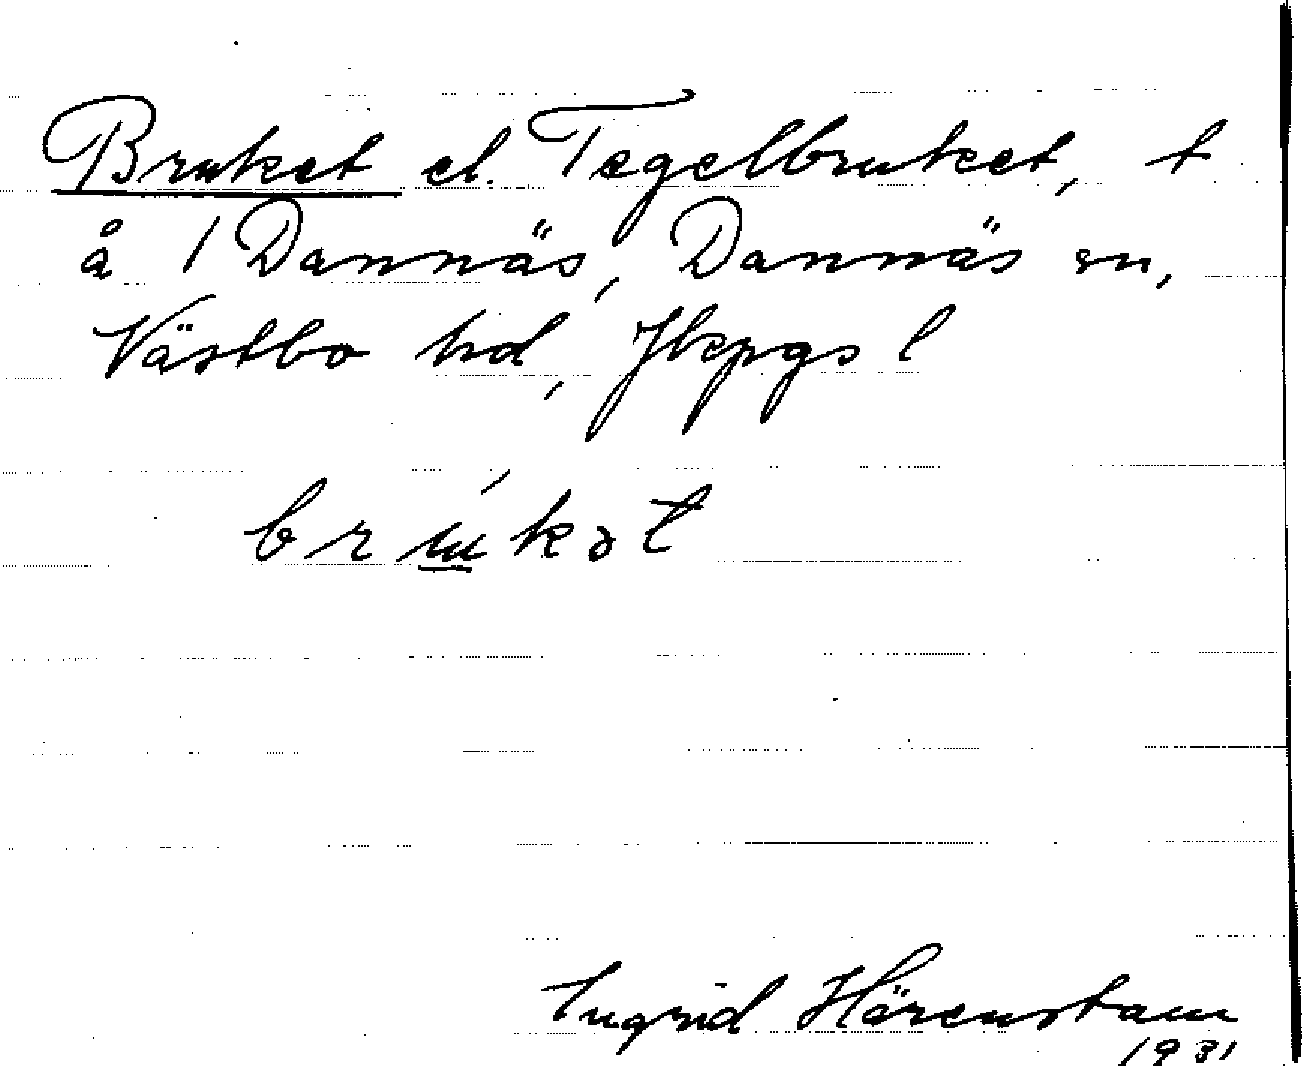 Bruket el. Tegelbruket, t
å 1 Dannäs, Dannäs sn,
Västbo hd, Jkpgs l
brúkət
Ingrid Härenstam
1931